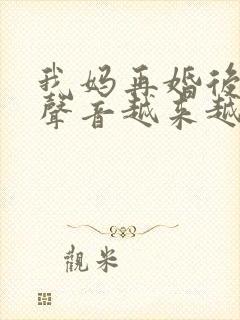 我妈再婚後
聲音越来越
觀米